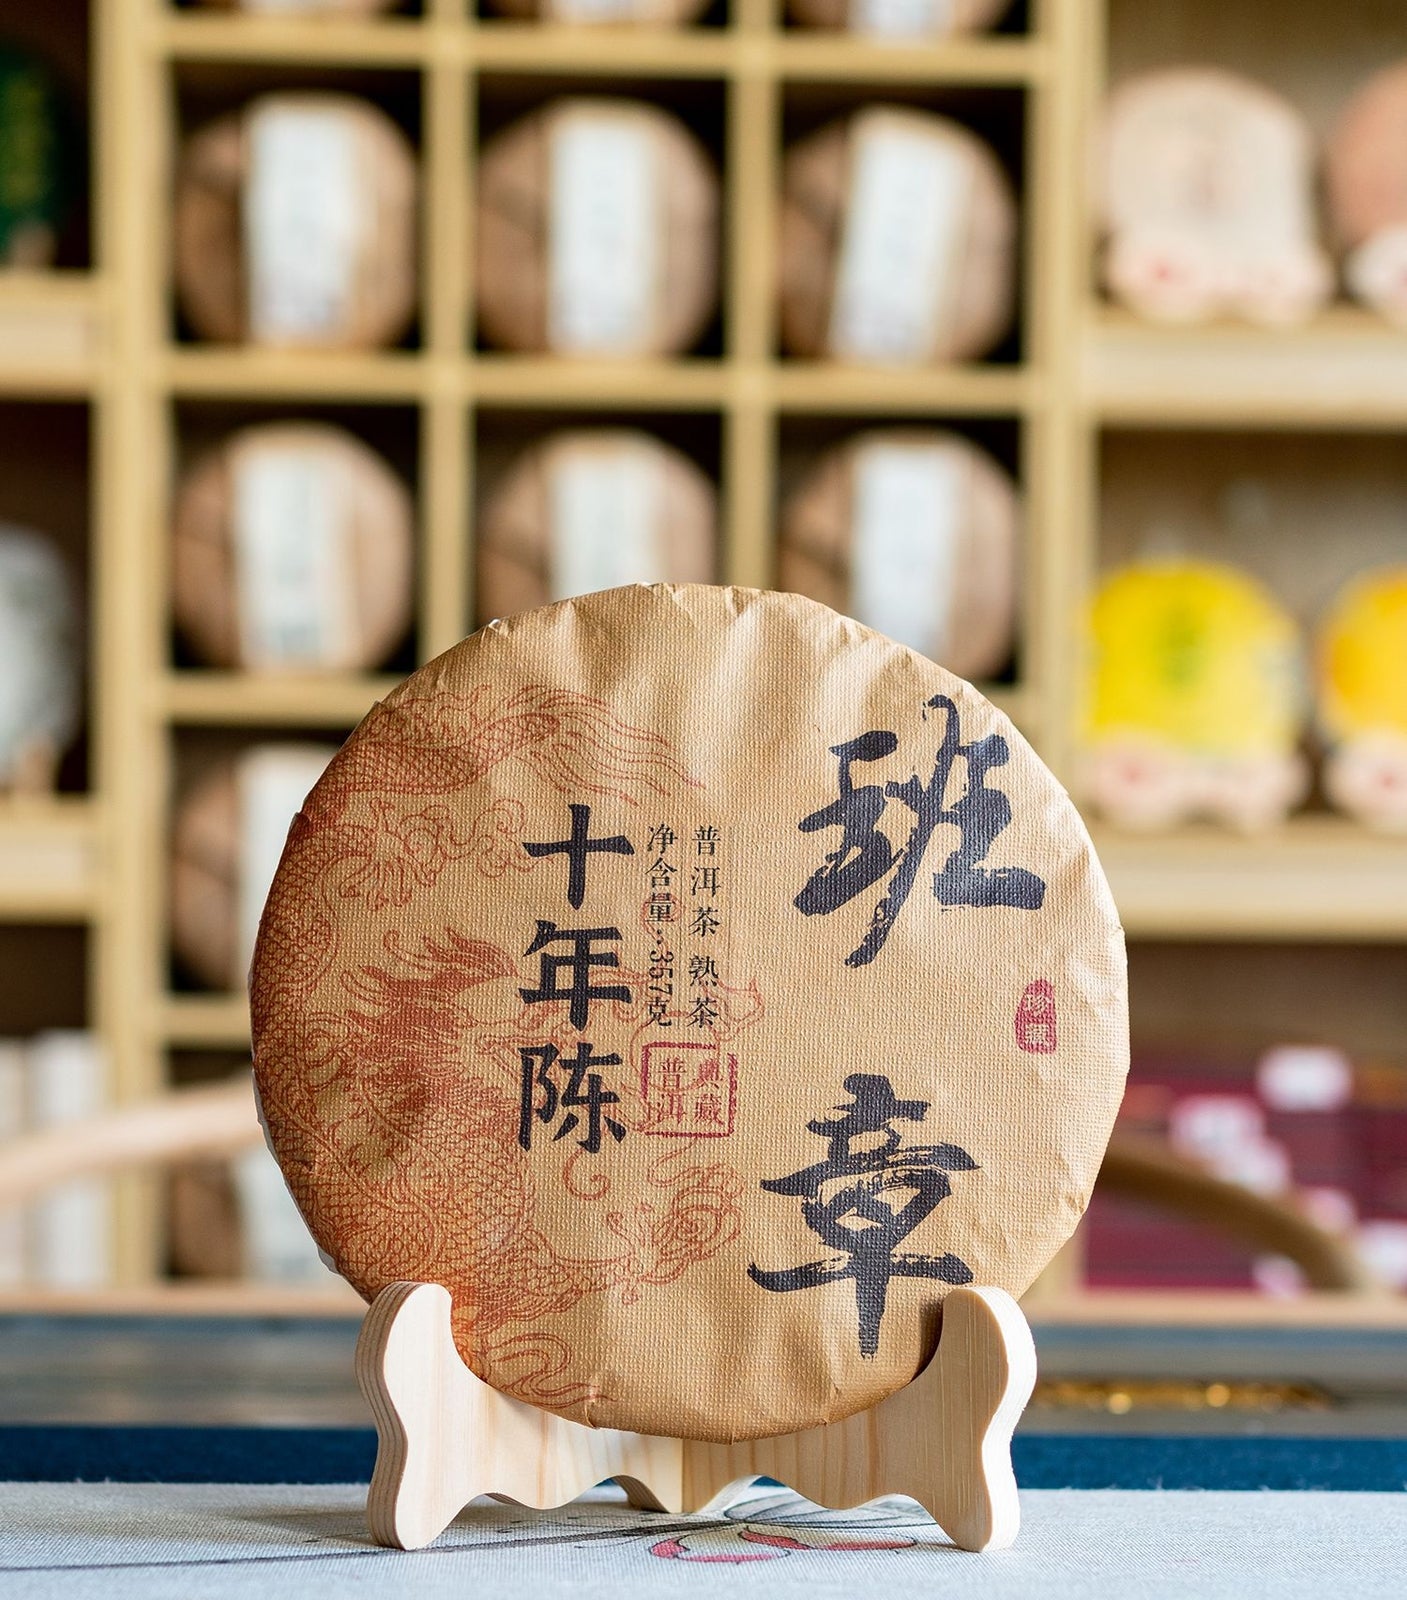 班章
珍藏
普洱茶熟茶
净含量:357克
典藏
普洱
十年陈